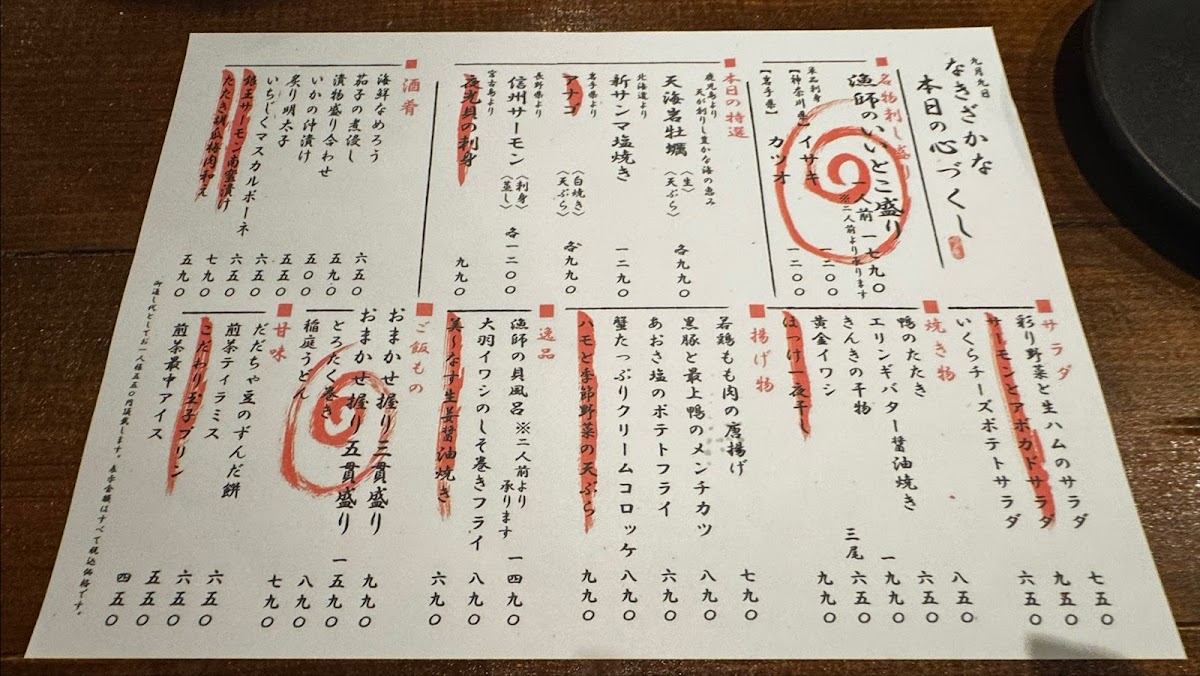 九月九日
なきざかな
本日の心づくし
名物刺し盛り
漁師のいいとこ盛り
一人前 一七九〇
※二人前より承ります
単品刺身
【神奈川県】イサキ 一二〇〇
【岩手県】カツオ 一二〇〇
本日の特選
鹿児島より
天が創りし豊かな海の恵み
天海岩牡蠣 〈生〉〈天ぷら〉 各九九〇
北海道より
新サンマ塩焼き 一二九〇
岩手県より
アナゴ 〈白焼き〉〈天ぷら〉 各九九〇
長野県より
信州サーモン 〈刺身〉〈蒸し〉 各一二〇〇
宮古島より
夜光貝の刺身 九九〇
酒肴
海鮮なめろう 六五〇
茄子の煮浸し 五九〇
漬物盛り合わせ 五〇〇
いかの汁漬け 五五〇
炙り明太子 六五〇
いちじくマスカルポーネ 六五〇
銀王サーモン南蛮漬け 七九〇
たたき胡瓜梅肉和え 五九〇
サラダ
彩り野菜と生ハムのサラダ 七五〇
サーモンとアボカドサラダ 九五〇
いくらチーズポテトサラダ 六五〇
焼き物
鴨のたたき 八五〇
エリンギバター醤油焼き 六五〇
きんきの干物 一九九〇
黄金イワシ 三尾 六五〇
ほっけ一夜干し 九九〇
揚げ物
若鶏もも肉の唐揚げ 七九〇
黒豚と最上鴨のメンチカツ 八九〇
あおさ塩のポテトフライ 六九〇
蟹たっぷりクリームコロッケ 八九〇
ハモと季節野菜の天ぷら 九九〇
逸品
漁師の貝風呂 ※二人前より承ります 一四九〇
大羽イワシのしそ巻きフライ 八九〇
美〜なす生姜醤油焼き 六九〇
ご飯もの
おまかせ握り三貫盛り 九九〇
おまかせ握り五貫盛り 一五九〇
とろたく巻き 八九〇
稲庭うどん 七九〇
甘味
だだちゃ豆のずんだ餅 六五〇
煎茶ティラミス 六五〇
こだわり玉子プリン 五五〇
煎茶最中アイス 四五〇
御通し代としてお一人様五五〇円頂戴します。表示金額はすべて税込価格です。